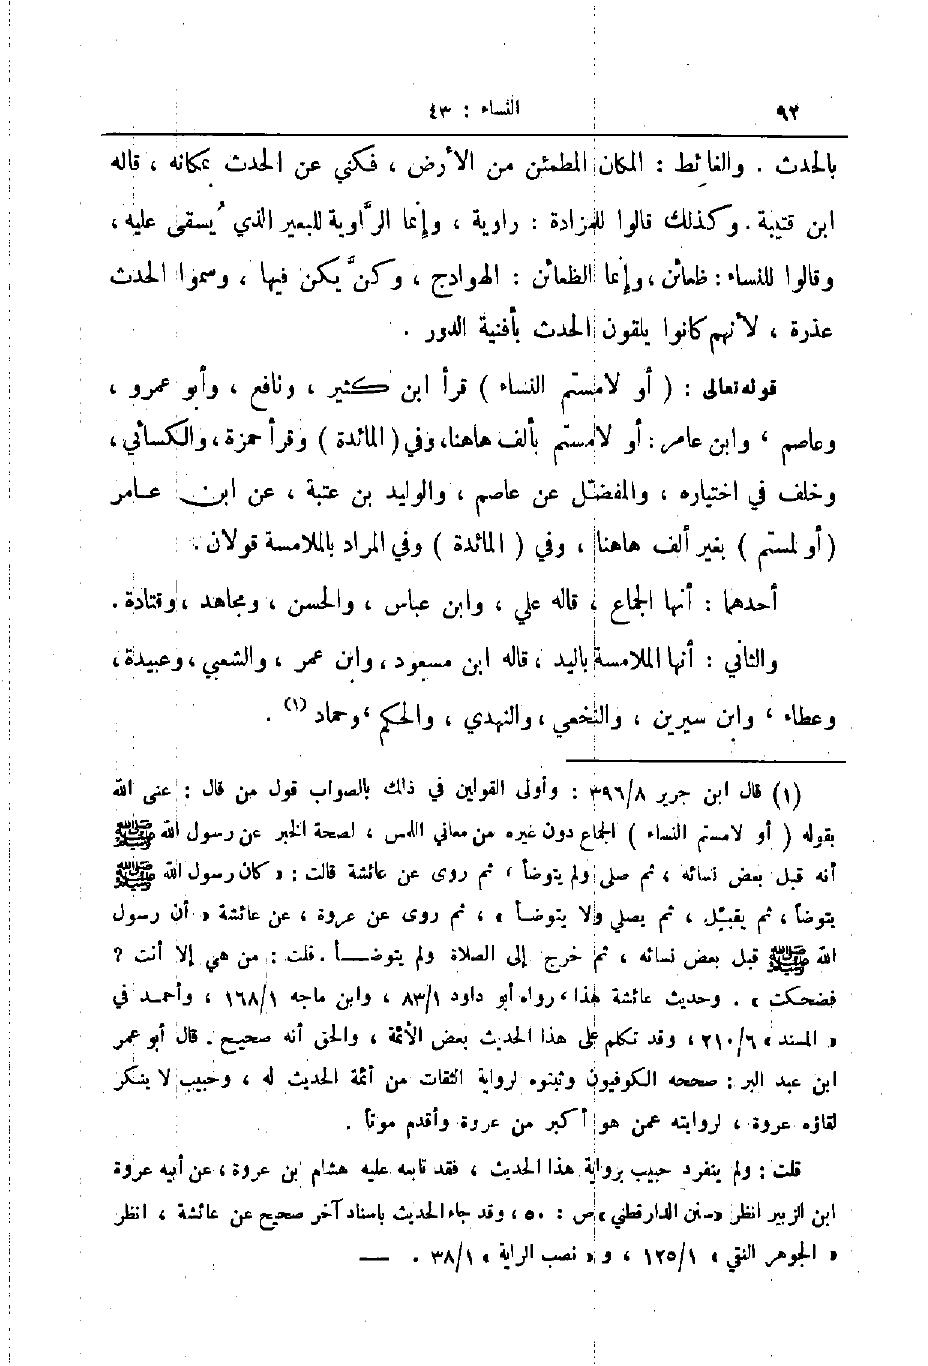 ٩٢ النساء : ٤٣
بالحدث . والغائط : المكان المطمئن من الأرض ، فكني عن الحدث بمكانه ، قاله
ابن قتيبة . وكذلك قالوا للمزادة : راوية ، وإنما الرَّاوية للبعير الذي يُسقى عليه ،
وقالوا للنساء : ظعائن ، وإنما الظعائن : الهوادج ، وكنَّ يكن فيها ، وسموا الحدث
عذرة ، لأنهم كانوا يلقون الحدث بأفنية الدور .
قوله تعالى : ( أو لامستم النساء ) قرأ ابن كثير ، ونافع ، وأبو عمرو ،
وعاصم ، وابن عامر : أو لامستم بألف هاهنا ، وفي ( المائدة ) وقرأ حمزة ، والكسائي ،
وخلف في اختياره ، والمفضّل عن عاصم ، والوليد بن عتبة ، عن ابن عامر
( أو لمستم ) بغير ألف هاهنا ، وفي ( المائدة ) وفي المراد بالملامسة قولان .
أحدهما : أنها الجماع ، قاله علي ، وابن عباس ، والحسن ، ومجاهد ، وقتادة .
والثاني : أنها الملامسة باليد ، قاله ابن مسعود ، وابن عمر ، والشعبي ، وعبيدة ،
وعطاء ، وابن سيرين ، والنخعي ، والنهدي ، والحكم ، وحماد (١) .
(١) قال ابن جرير ٣٩٦/٨ : وأولى القولين في ذلك بالصواب قول من قال : عنى الله
بقوله ( أو لامستم النساء ) الجماع دون غيره من معاني اللمس ، لصحة الخبر عن رسول الله ﷺ
أنه قبل بعض نسائه ، ثم صلى ولم يتوضأ ، ثم روى عن عائشة قالت : « كان رسول الله ﷺ
يتوضأ ، ثم يقبّل ، ثم يصلي ولا يتوضأ » ، ثم روى عن عروة ، عن عائشة « أن رسول
الله ﷺ قبل بعض نسائه ، ثم خرج إلى الصلاة ولم يتوضأ . قلت : من هي إلا أنت ؟
فضحكت » . وحديث عائشة هذا ، رواه أبو داود ٨٣/١ ، وابن ماجه ١٦٨/١ ، وأحمد في
« المسند » ٢١٠/٦ ، وقد تكلم على هذا الحديث بعض الأئمة ، والحق أنه صحيح . قال أبو عمر
ابن عبد البر : صححه الكوفيون وثبتوه لرواية الثقات من أئمة الحديث له ، وحبيب لا ينكر
لقاؤه عروة ، لروايته عمن هو أكبر من عروة وأقدم موتاً .
قلت : ولم ينفرد حبيب برواية هذا الحديث ، فقد تابعه عليه هشام بن عروة ، عن أبيه عروة
ابن الزبير انظر « سنن الدارقطني » ص : ٥٠ ، وقد جاء الحديث باسناد آخر صحيح عن عائشة ، انظر
« الجوهر النقي » ١٢٥/١ ، و « نصب الراية » ٣٨/١ . —